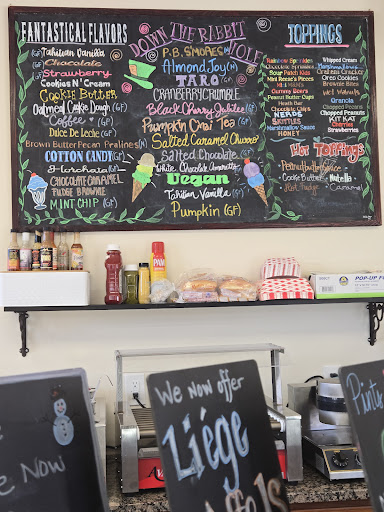 FANTASTICAL FLAVORS
(GF) Tahitian Vanilla
(GF) Chocolate
Strawberry
Cookies N' Cream
Cookie Butter
Oatmeal Cake Dough (GF)
Coffee (GF)
Dulce De Leche (GF)
Brown Butter Pecan Pralines (N)
COTTON CANDY (GF)
Horchata
CHOCOLATE CARAMEL
FUDGE BROWNIE
MINT CHIP (GF)
DOWN THE RIBBIT
HOLE
P.B. S'MORES
Almond Joy (N)
TARO
CRANBERRY CRUMBLE
Black Cherry Jubilee
Pumpkin Chai Tea (GF)
Salted Caramel Churro
Salted Chocolate (GF)
White Chocolate Amaretto
VEGAN
Tahitian Vanilla (GF)
Pumpkin (GF)
TOPPINGS
Rainbow Sprinkles
Chocolate Sprinkles
Sour Patch Kids
Mini Reese's Pieces
M & M Minis
Gummy Bears
Peanut Butter Cups
Heath Bar
Chocolate Chips
NERDS
SKITTLES
Marshmallow Sauce
HONEY
Whipped Cream
Graham Cracker
Oreo Cookies
Brownie Bites
Wet Walnuts
Granola
Chopped Pecans
Chopped Peanuts
KIT KAT
Strawberries
Hot TOPPINGS
Peanut butter
Cookie Butter
Nutella
Hot Fudge
Caramel
PAM
POP-UP
We Now offer
Liége
Now
Pints